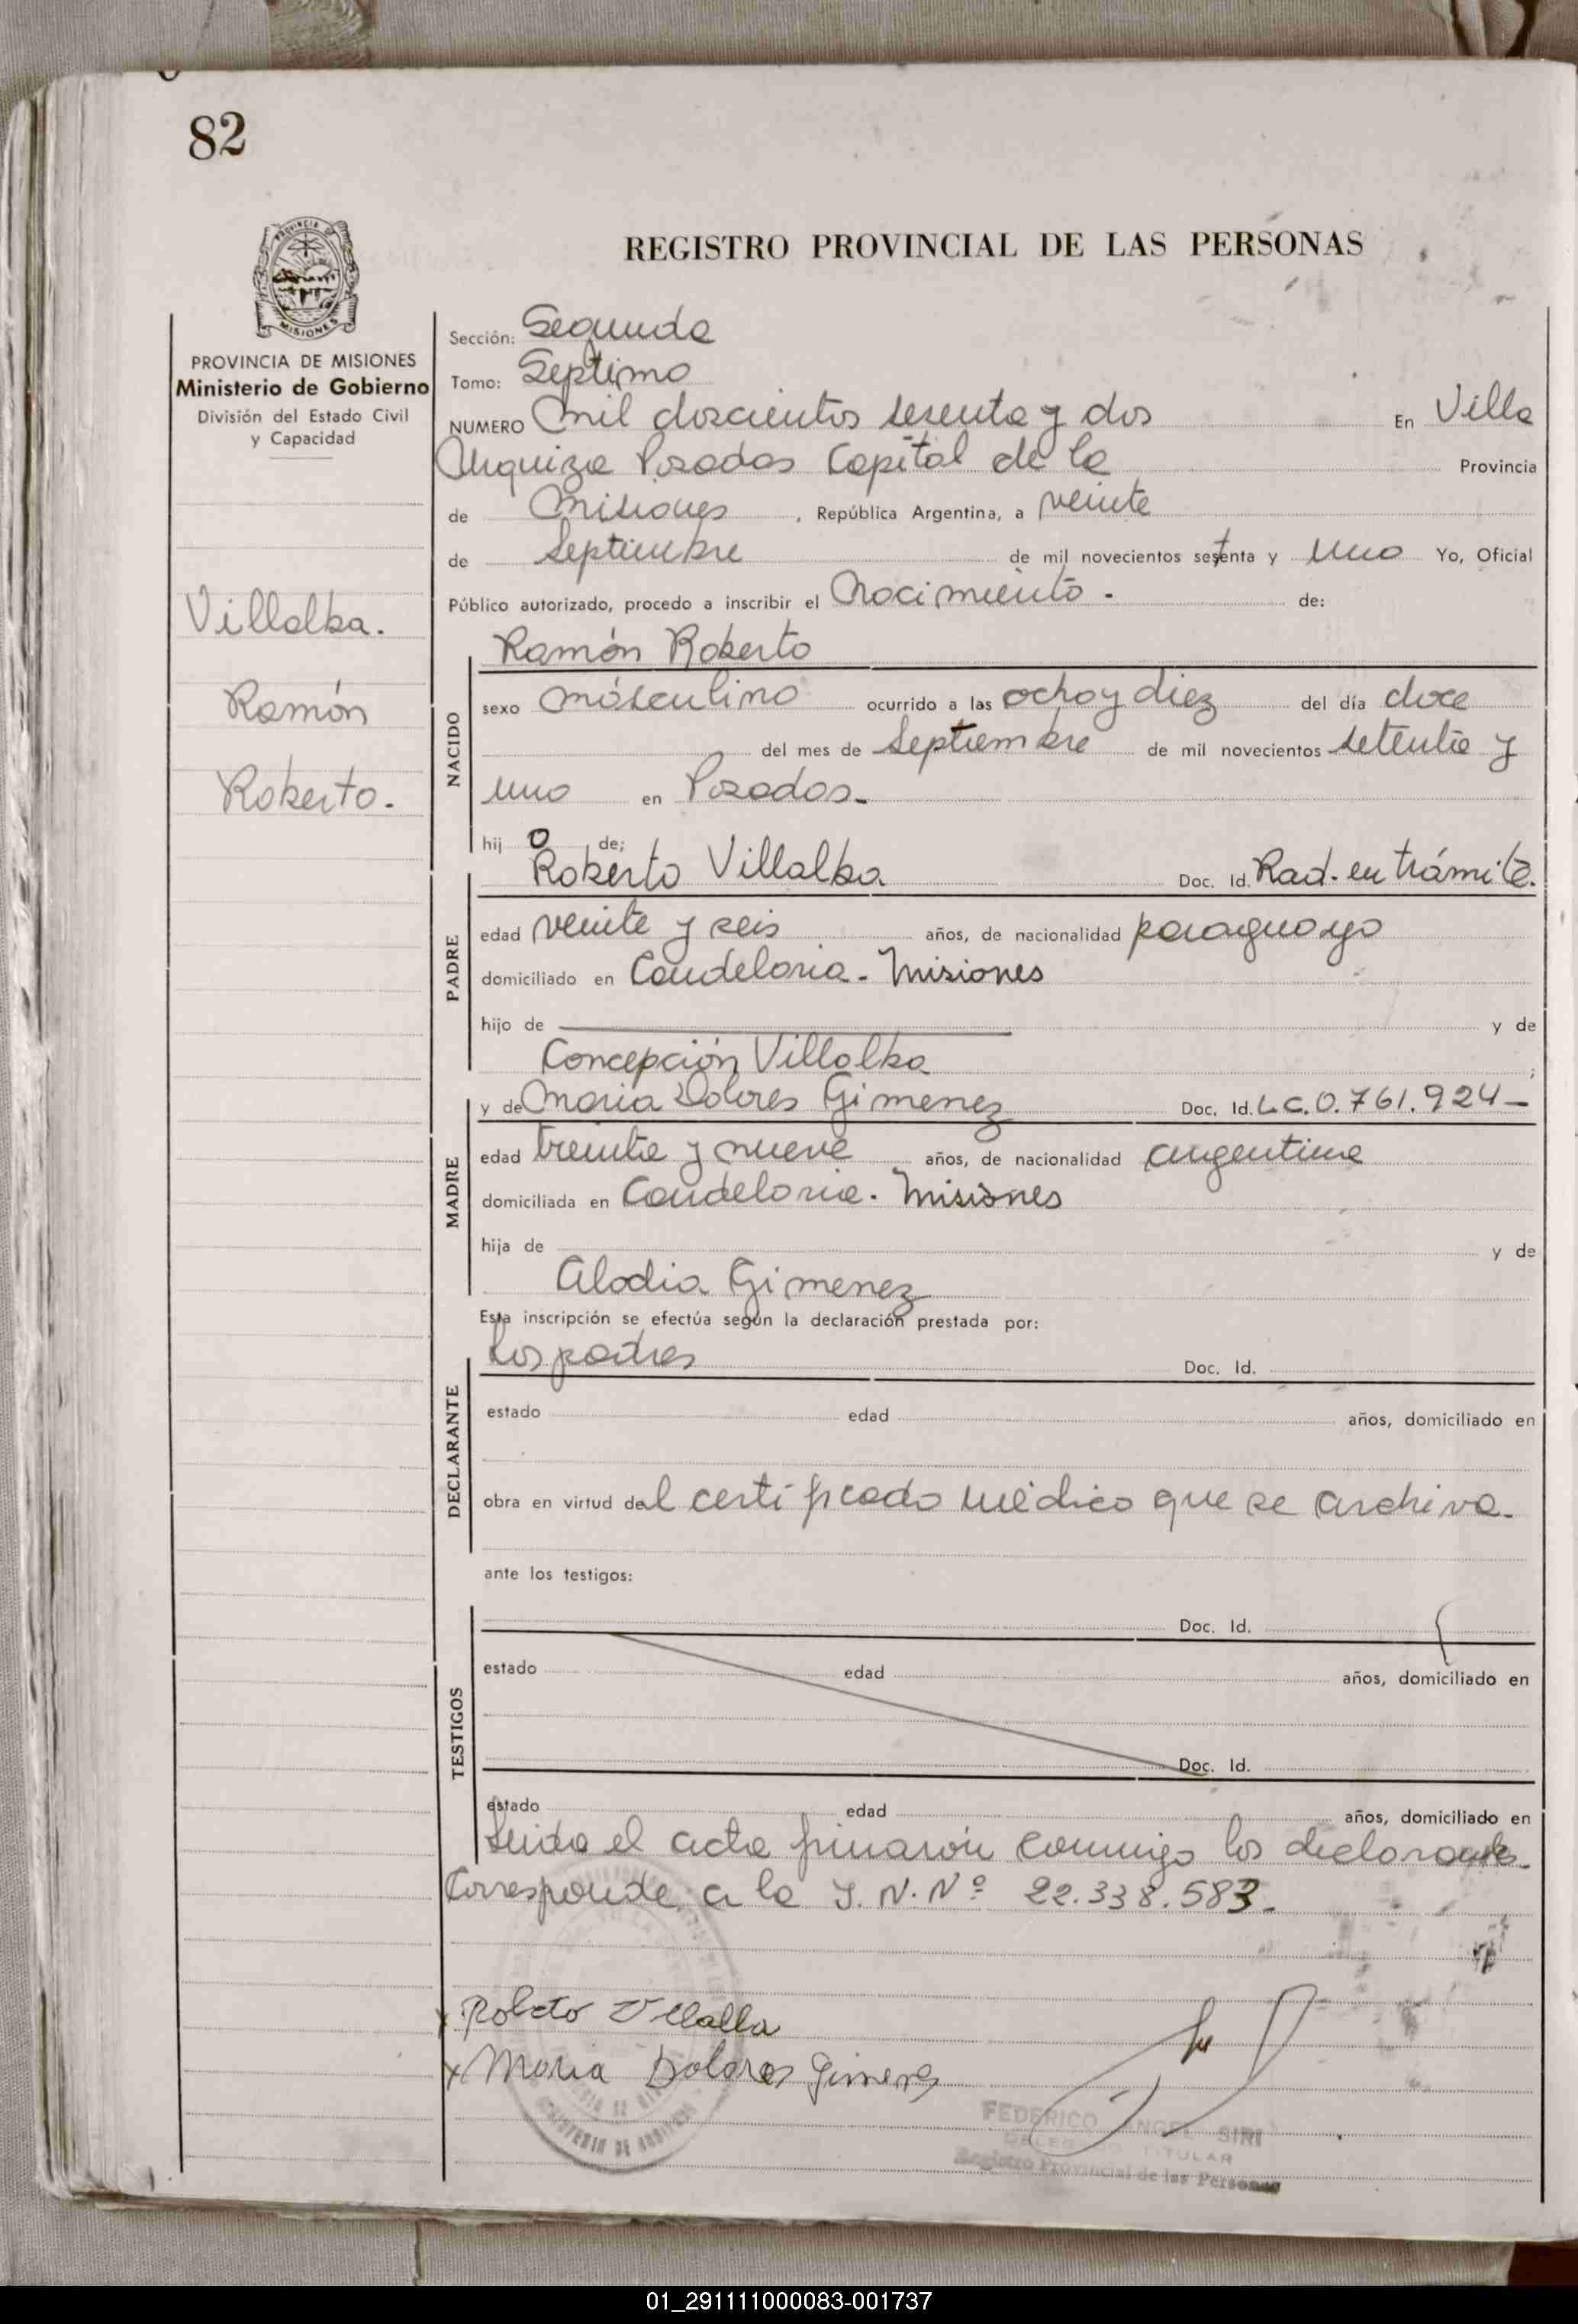 82
REGISTRO PROVINCIAL DE LAS PERSONAS
PROVINCIA DE MISIONES
MISIONES
PROVINCIA DE MISIONES
Ministerio de Gobierno
División del Estado Civil
y Capacidad
Villalba.
Ramón
Roberto.
Sección: Segunda
Tomo: Septimo
NUMERO mil doscientos sesenta y dos En Villa
Urquiza Posadas Capital de la Provincia
de Misiones, República Argentina, a veinte
de Septiembre de mil novecientos setenta y uno Yo, Oficial
Público autorizado, procedo a inscribir el Nacimiento. de:
Ramón Roberto
NACIDO
sexo másculino ocurrido a las ocho y diez del día doce
del mes de Septiembre de mil novecientos setenta y
uno en Posadas.
hij o de;
Roberto Villalba Doc. Id. Rad. en trámite.
PADRE
edad veinte y seis años, de nacionalidad paraguayo
domiciliado en Candelaria - Misiones
hijo de y de
Concepción Villalba ;
y de Maria Dolores Gimenez Doc. Id. L.C.0.761.924-
MADRE
edad treinta y nueve años, de nacionalidad argentina
domiciliada en Candelaria. Misiones
hija de y de
Alodia Gimenez
Esta inscripción se efectúa según la declaración prestada por:
Los padres Doc. Id.
DECLARANTE
estado edad años, domiciliado en
obra en virtud del certificado médico que se archiva.
ante los testigos:
Doc. Id.
TESTIGOS
estado edad años, domiciliado en
Doc. Id.
estado edad años, domiciliado en
Leida el acta firmarón conmigo los declarantes.
Corresponde a la I.N.Nº 22.338.583.
x Roberto Villalba
x Maria Dolores Gimenez
FEDERICO ANGEL SIRI
DELEGADO TITULAR
Registro Provincial de las Personas
01_291111000083-001737